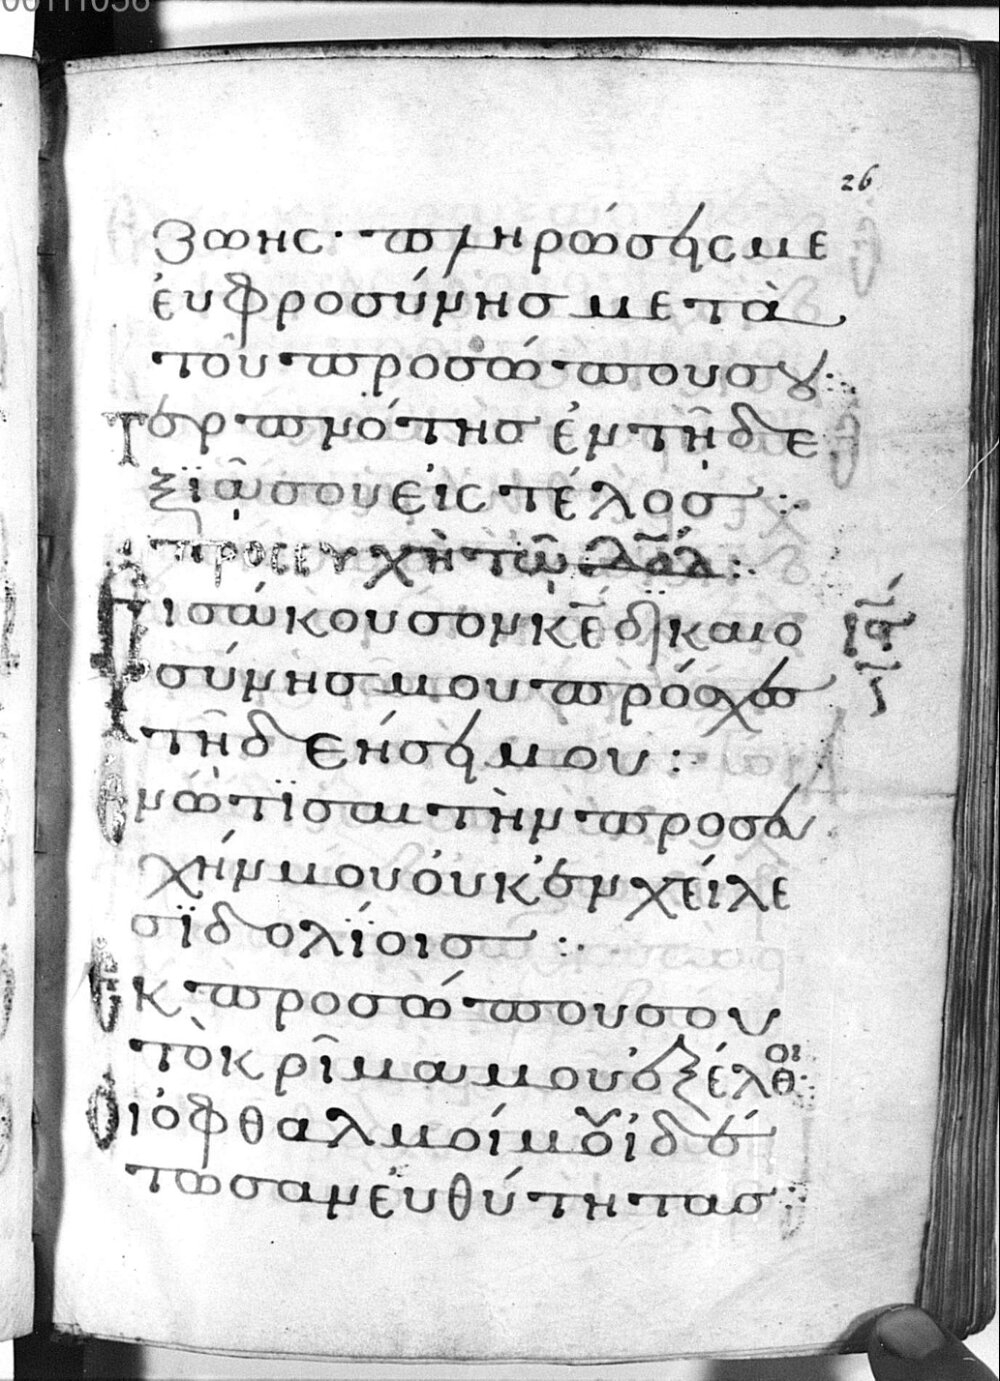 00111056
26
ζωης· πληρώσεις με
ἐυφροσύνησ μετὰ
τοῦ προσώπου σου·
τερπνότησ ἐν τῆ δε
ξϊᾶ σου εἰς τέλοσ :·
προσευχὴ τῶ δαδ :
Εισάκουσον κε δϊκαιο
σύνησ μου πρόσχεσ
τῆ δεήσει μου :·
Ενώτϊσαι τὴν προσευ
χήν μου ὀυκ ἐν χείλε
σϊ δολίοισ :·
Εκ προσώπου σου
τὸ κρῖμα μου ἐξέλθοι·
Οι ὀφθαλμοί μου ἰδέ
τωσαν ἐυθύτητασ :
ιϛ